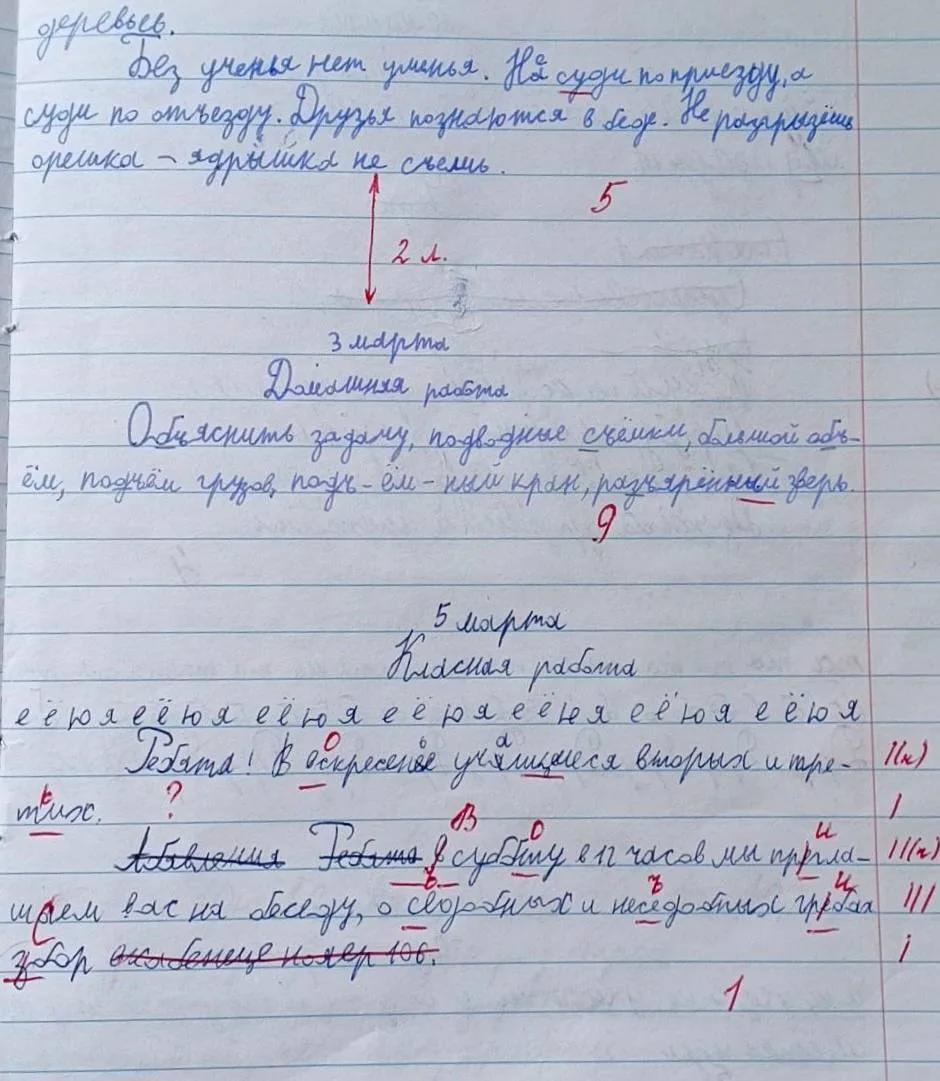 деревьев.
Без ученья нет уменья. Не суди по приезду, а
суди по отъезду. Друзья познаются в беде. Не разгрызёшь
орешка – ядрышка не съешь.
5
2 л.
3 марта
Домашняя работа
Объяснить задачу, подводные съёмки, большой объ-
ём, подъём грузов, подъ-ём-ный кран, разъярённый зверь.
9
5 марта
Класная работа
е ё ю я е ё ю я е ё ю я е ё ю я е ё ю я е ё ю я е ё ю я
Ребята! В воскресенье учащиеся вторых и тре- I(н)
тих. ? I
Абявления Ребята В субботу в 12 часов мы пригла- III(н)
шаем вас на беседу, о сьедобных и несъедобных грибах III
збор I
1